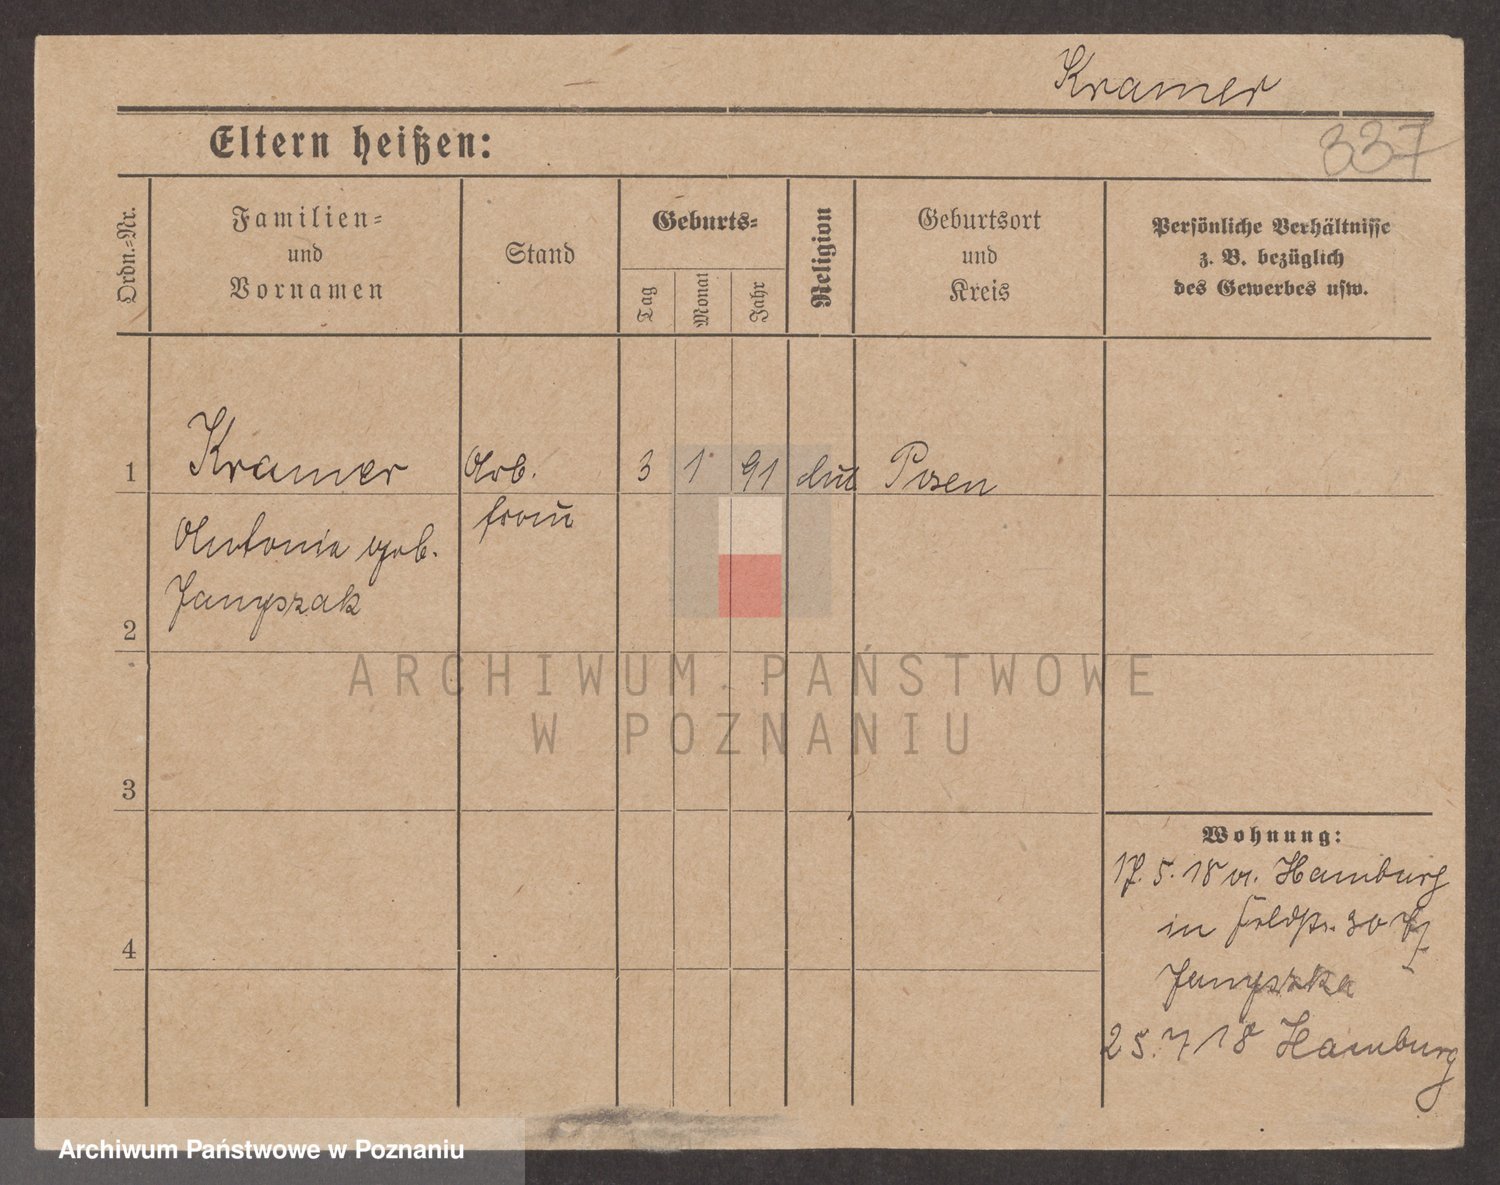 Kramer
337
Eltern heißen:
Ordn.=Nr.
Familien=
und
Vornamen
Stand
Geburts=
Tag
Monat
Jahr
Religion
Geburtsort
und
Kreis
Persönliche Verhältnisse
z. B. bezüglich
des Gewerbes usw.
1 Kramer Arb. 3 1 91 Posen
frau
Antonia geb.
2
3
4
Wohnung:
17. 5. 18 v. Hamburg
in Feldstr. 30
25. 7 18 Hamburg
ARCHIWUM PAŃSTWOWE
W POZNANIU
Archiwum Państwowe w Poznaniu